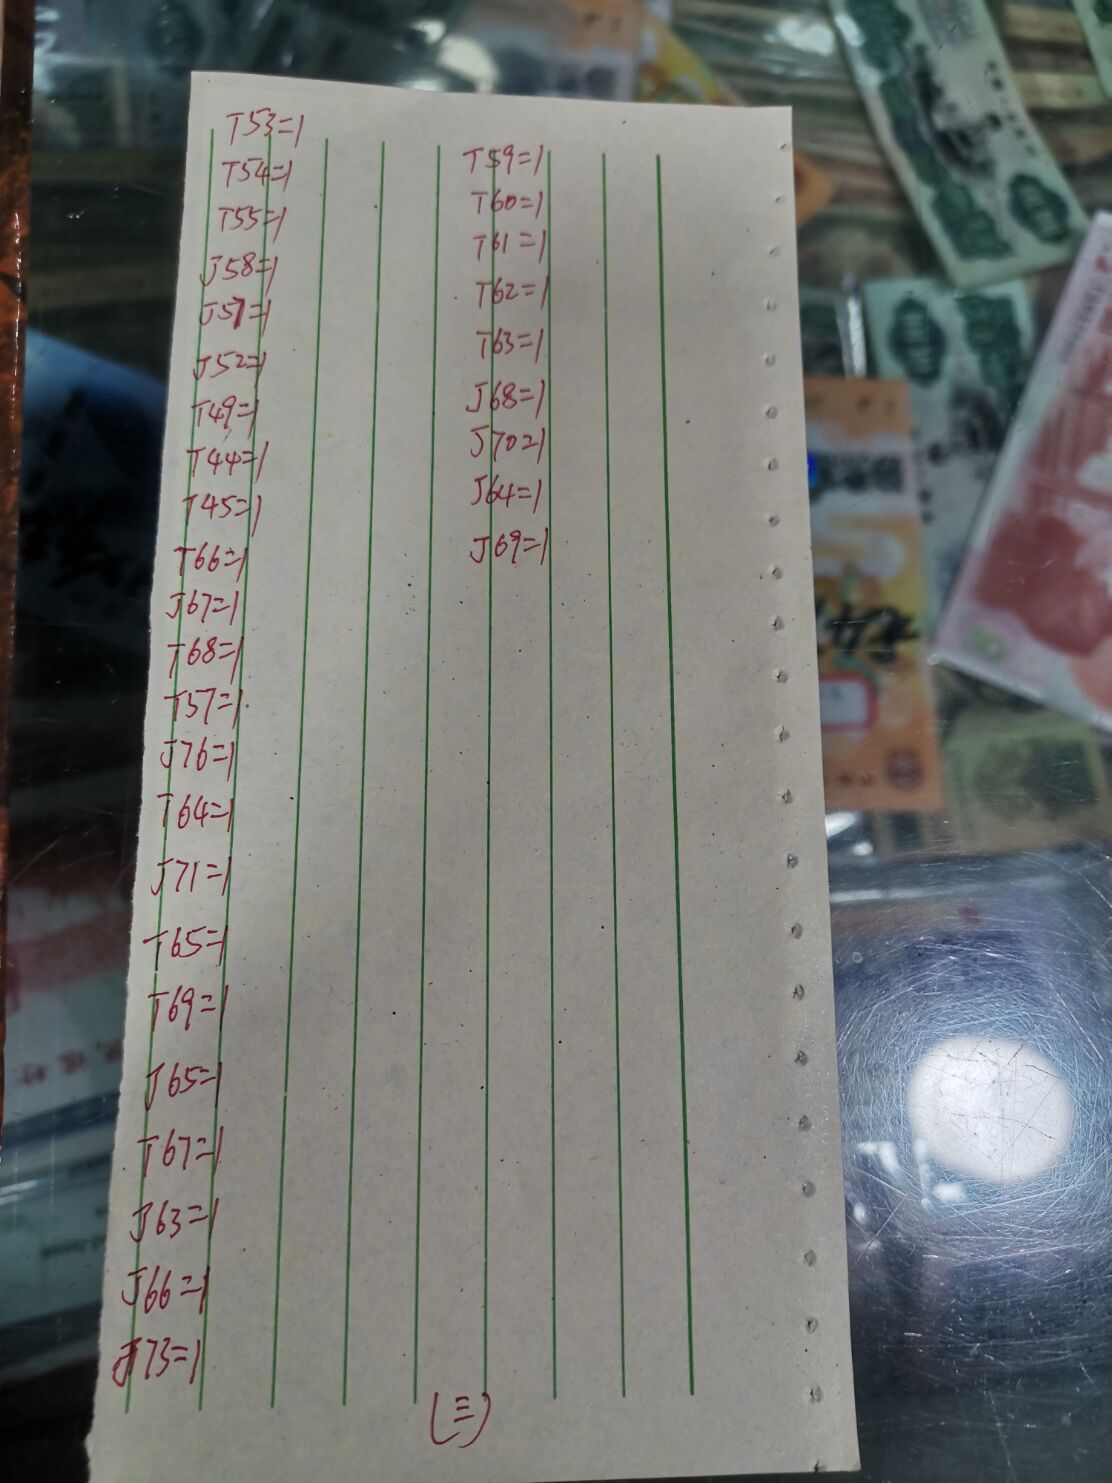 T53=1
T54=1
T55=1
J58=1
J57=1
J52=1
T49=1
T44=1
T45=1
T66=1
J67=1
T68=1
T57=1
J76=1
T64=1
J71=1
T65=1
T69=1
J65=1
T67=1
J63=1
J66=1
J73=1
T59=1
T60=1
T61=1
T62=1
T63=1
J68=1
J70=1
J64=1
J69=1
(三)